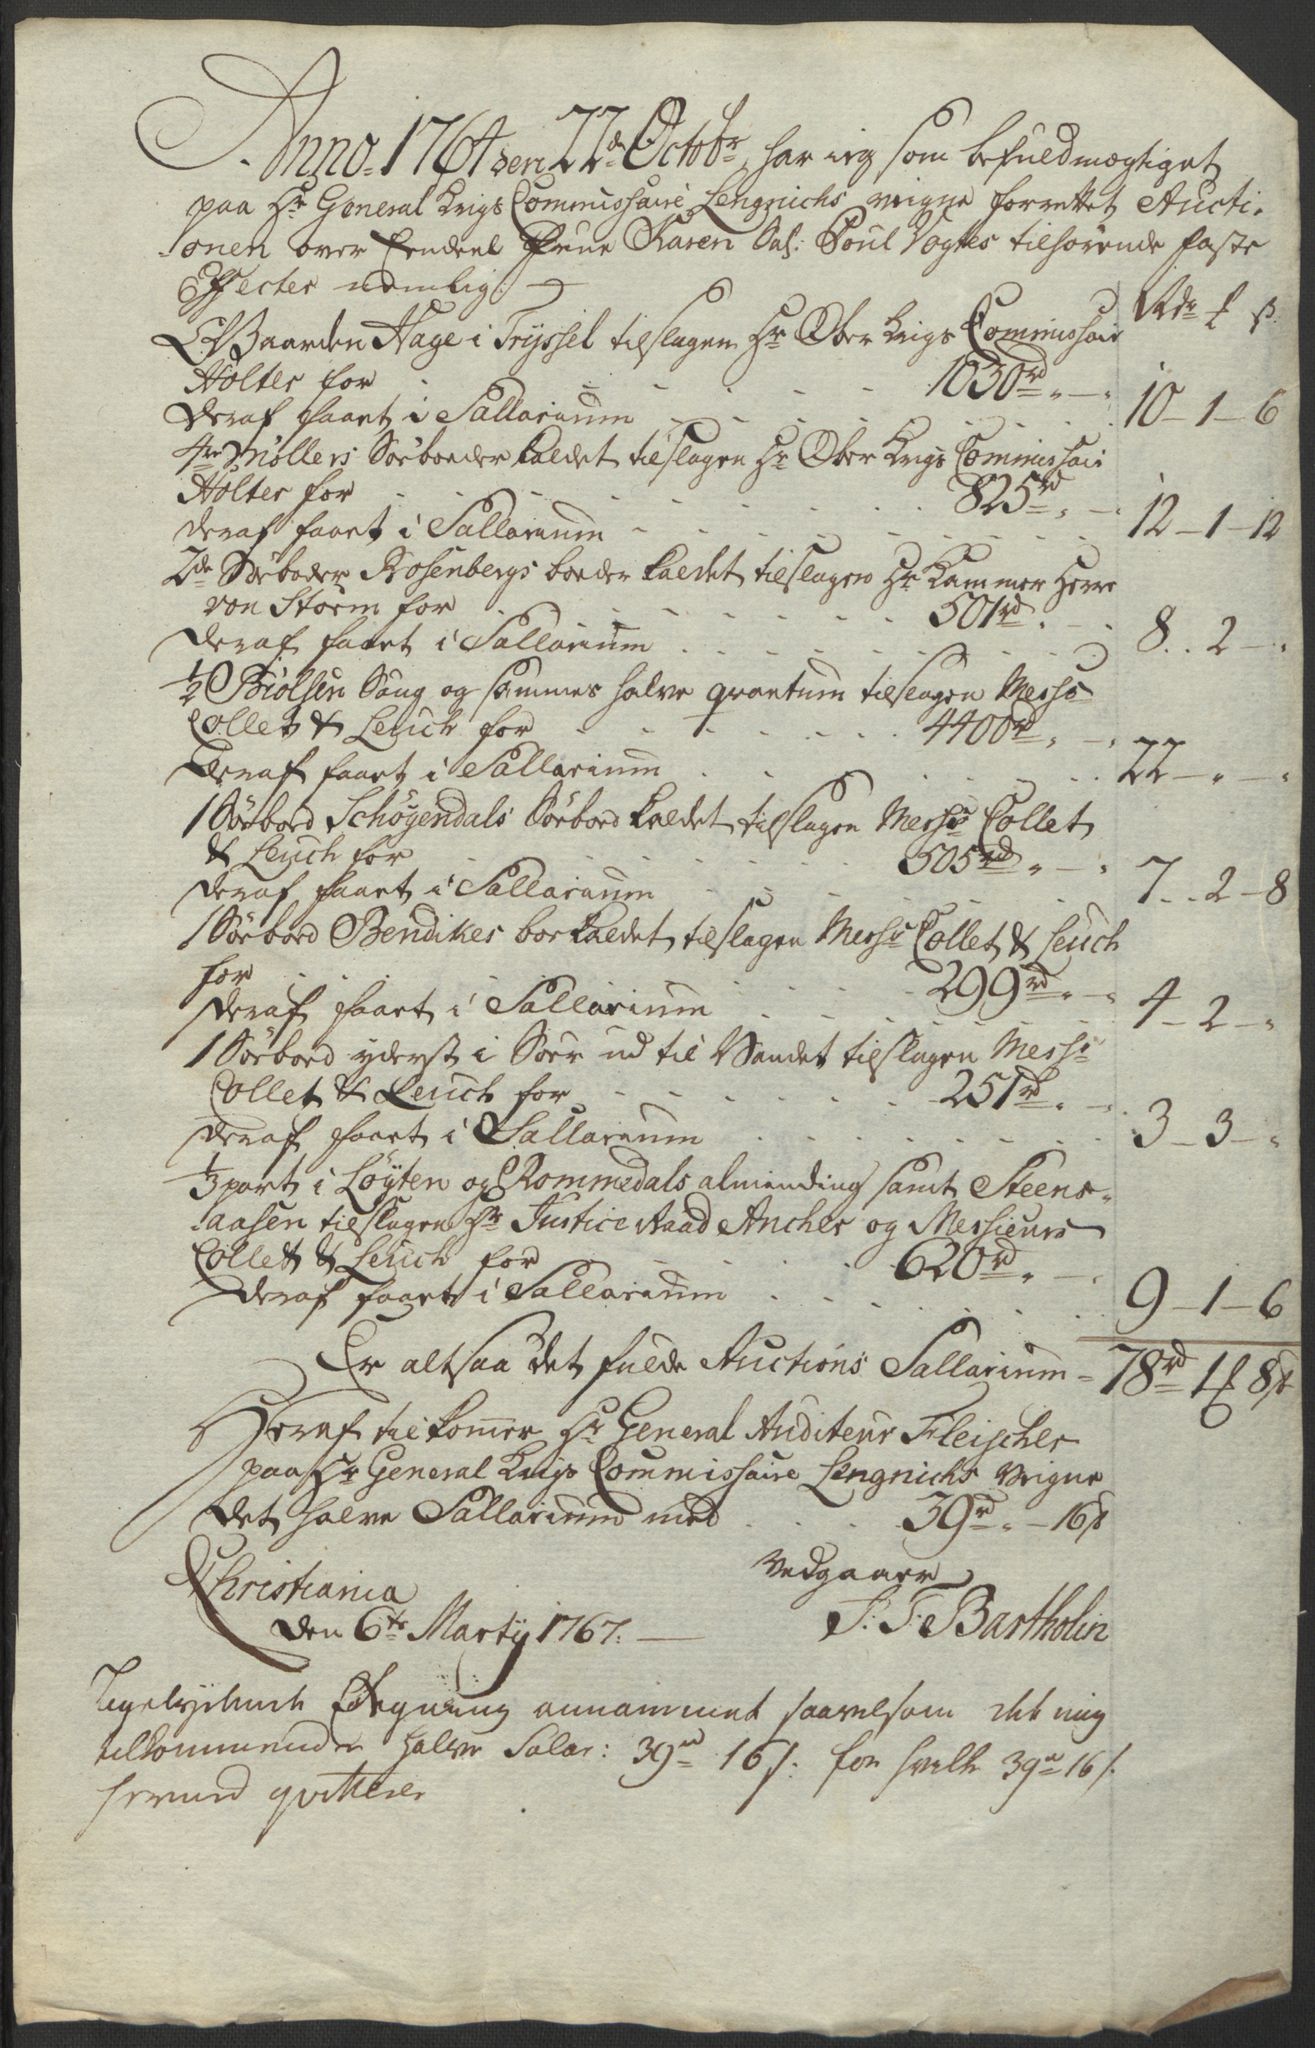 Anno 1764 den 22de Octobr, har ieg som befuldmægtiget
paa Hr General Krigs Commissaire Lengnichs veigne forrettet Aucti-
onen over Eendeel Frue Karen Sal: Poul Vogtes tilhörende faste
Effecter nemlig:
Rdr ƒ ß.
Gaarden Hage i Tryssel tilslagen Hr Ober Krigs Commissair
Holter for - - - 1030rd " — "
deraf faaet i Sallarium - - - 10 — 1 — 6
4re Möllers Söeboeder kaldet tilslagen Hr Ober Krigs Commissair
Holter for - - - 825rd " — "
deraf faaet i Sallarium - - - 12 — 1 — 12
2de Söeboder Rosenbergs boeder kaldet tilslagen Hr Kammer Herre
von Storm for - - - 501rd " — "
deraf faaet i Sallarium - - - 8 .. 2 — "
1/2 Biölsen Saug og sammes halve qvantum tilslagen Messrs
Collet & Leuch for - - - 4400rd " — "
deraf faaet i Sallarium - - - 22 — " — "
1 Söebord Schöyendals Söebord kaldet tilslagen Messrs Collet
& Leuch for - - - 505rd " — "
deraf faaet i Sallarium - - - 7 .. 2 — 8
1 Söebord Bendikes bor kaldet tilslagen Messrs Collet & Leuch
for - - - 299rd " — "
deraf faaet i Sallarium - - - 4 — 2 — "
1 Söebord yderst i Söer ud til Vandet tilslagen Messrs
Collet & Leuch for - - - 251rd " — "
deraf faaet i Sallarium - - - 3 — 3 — "
1/3 part i Löyten og Rommedals alminding samt Steens-
aasen tilslagen Hr Justice Raad Ancher og Messieurs
Collet & Leuch for - - - 620rd " — "
deraf faaet i Sallarium - - - 9 — 1 — 6
Er altsaa det fulde Auctions Sallarium - 78rd 1ƒ 8ß
Heraf tilkommer Hr General Auditeur Fleischer
paa Hr General Krigs Commissaire Lengnichs Veigne
det halve Sallarium med - - - 39rd " — 16ß
Christiania vedgaaer
den 6te Martij 1767. — P: T: Bartholin
Regning annammet saavelsom det mig
tilkommende halve Salar: 39rd 16ß. for hvilke 39rd 16ß.
herved qvitterer